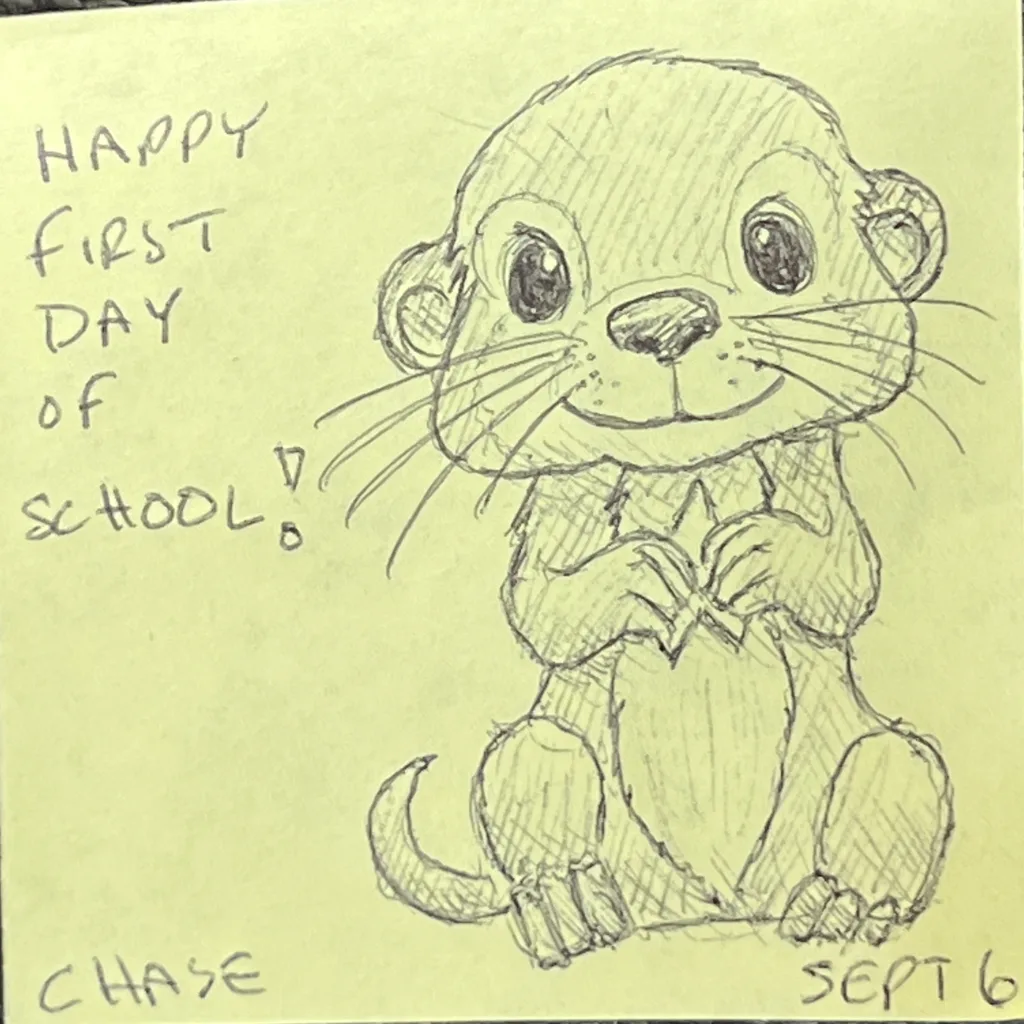 HAPPY
FIRST
DAY
OF
SCHOOL!
CHASE
SEPT 6